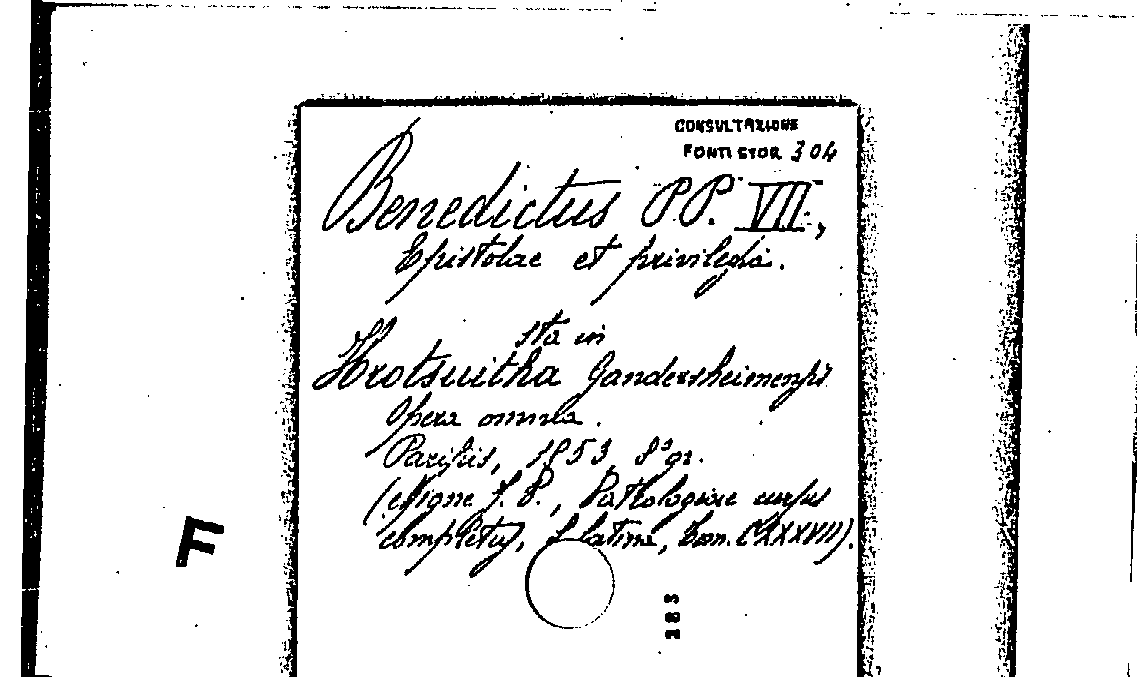 CONSULTAZIONE
FONTI STOR 304
Benedictus PP. VII,
Epistolae et privilegia.
sta in
Hrotsuitha Gandersheimensis
Opera omnia.
Parisiis, 1853, 8° gr.
(Migne J. P., Patrologiae cursus
completus, S. latina, tom. CXXXVII).
F
283